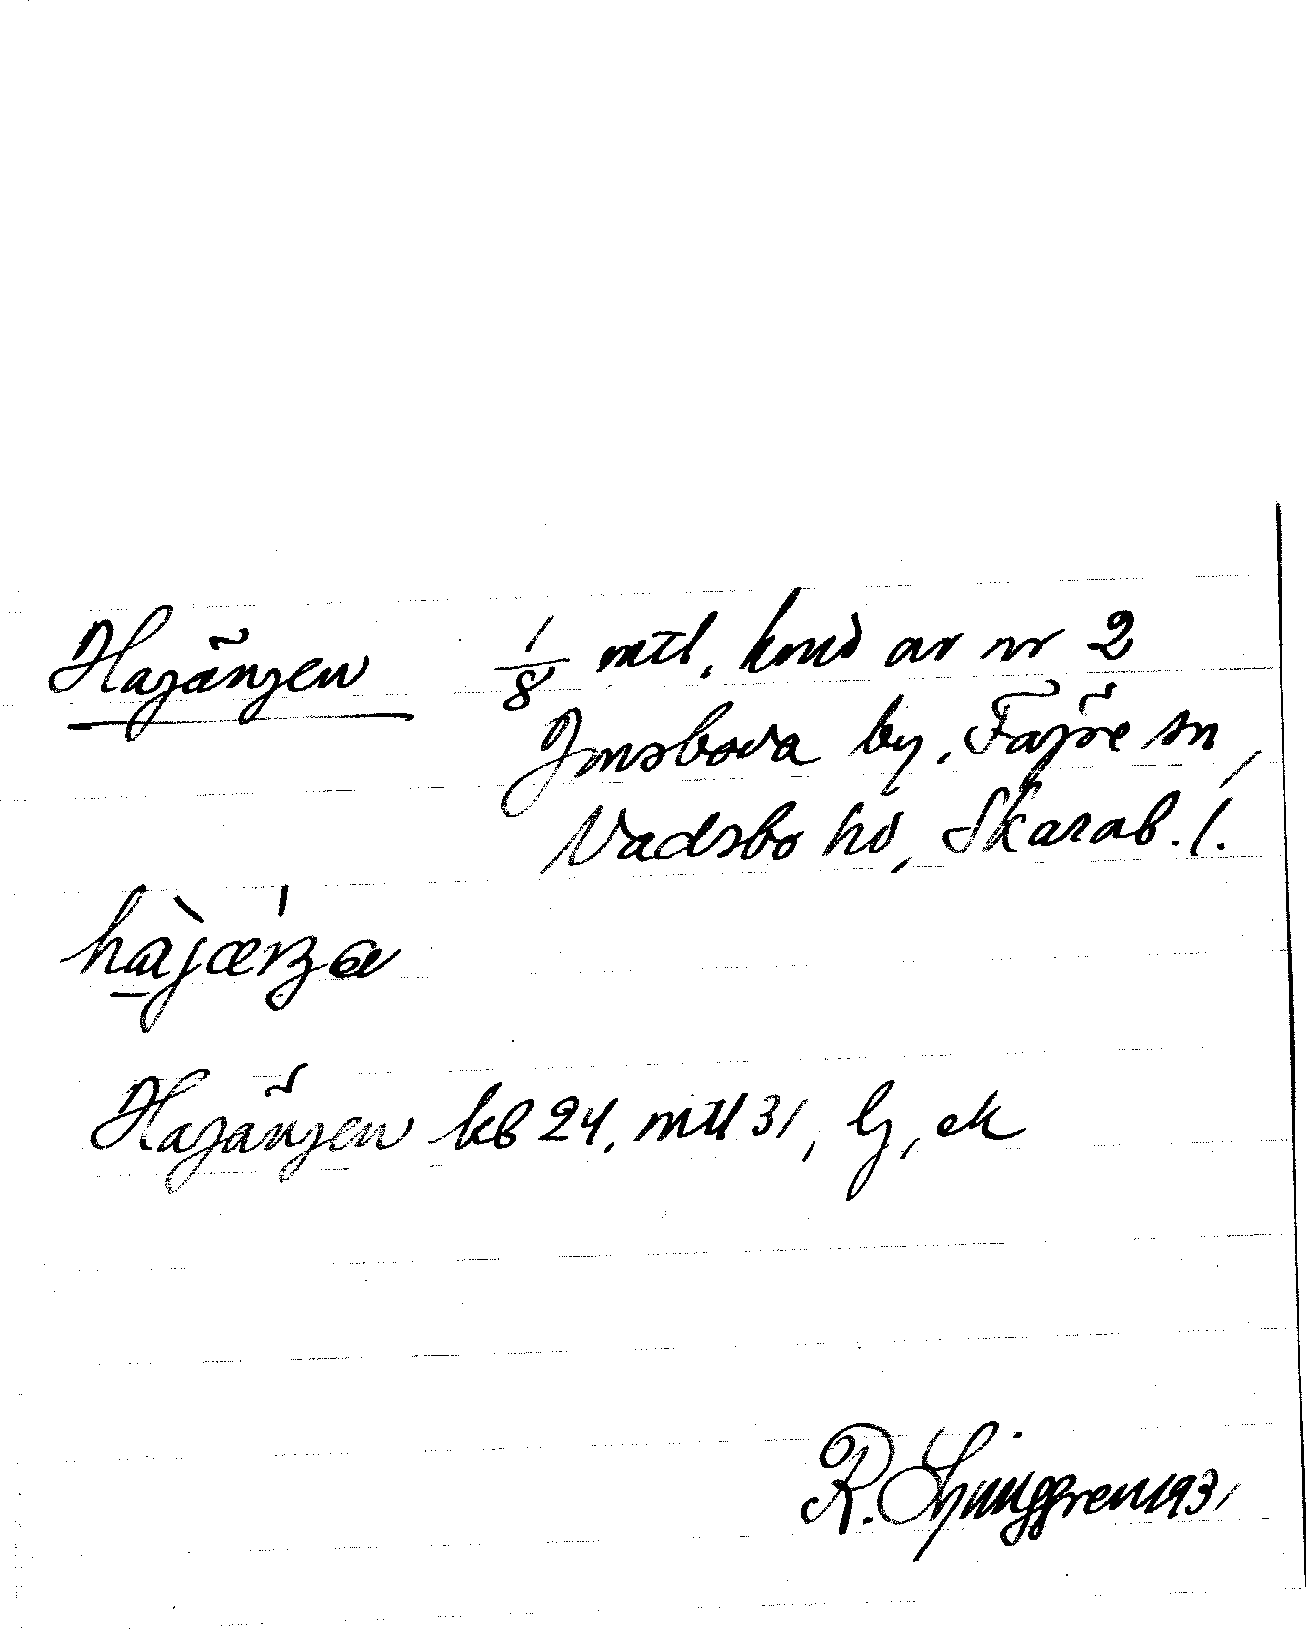 Hagängen 1/8 mtl, hmd av nr 2
Jonsboda by, Fägre sn,
Vadsbo hd, Skarab. l.
Hagängen kb 24, mtl 31, lj, ek
R. Ljunggren 1931